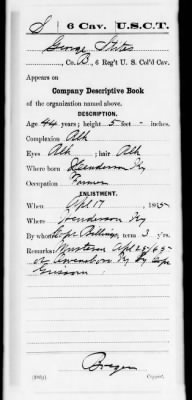 S | 6 Cav. | U.S.C.T.
George Stites
, Co. B, 6 Reg't U. S. Col'd Cav.
Appears on
Company Descriptive Book
of the organization named above.
DESCRIPTION.
Age 44 years; height 5 feet - inches.
Complexion Blk
Eyes Blk ; hair Blk
Where born Henderson Ky
Occupation Farmer
ENLISTMENT.
When Apl 17 , 1865
Where Henderson Ky
By whom Capt Billings; term 3 yrs.
Remarks: Mustered Apl 28/65
at Owensboro Ky by Capt
Grissom
Copyist.